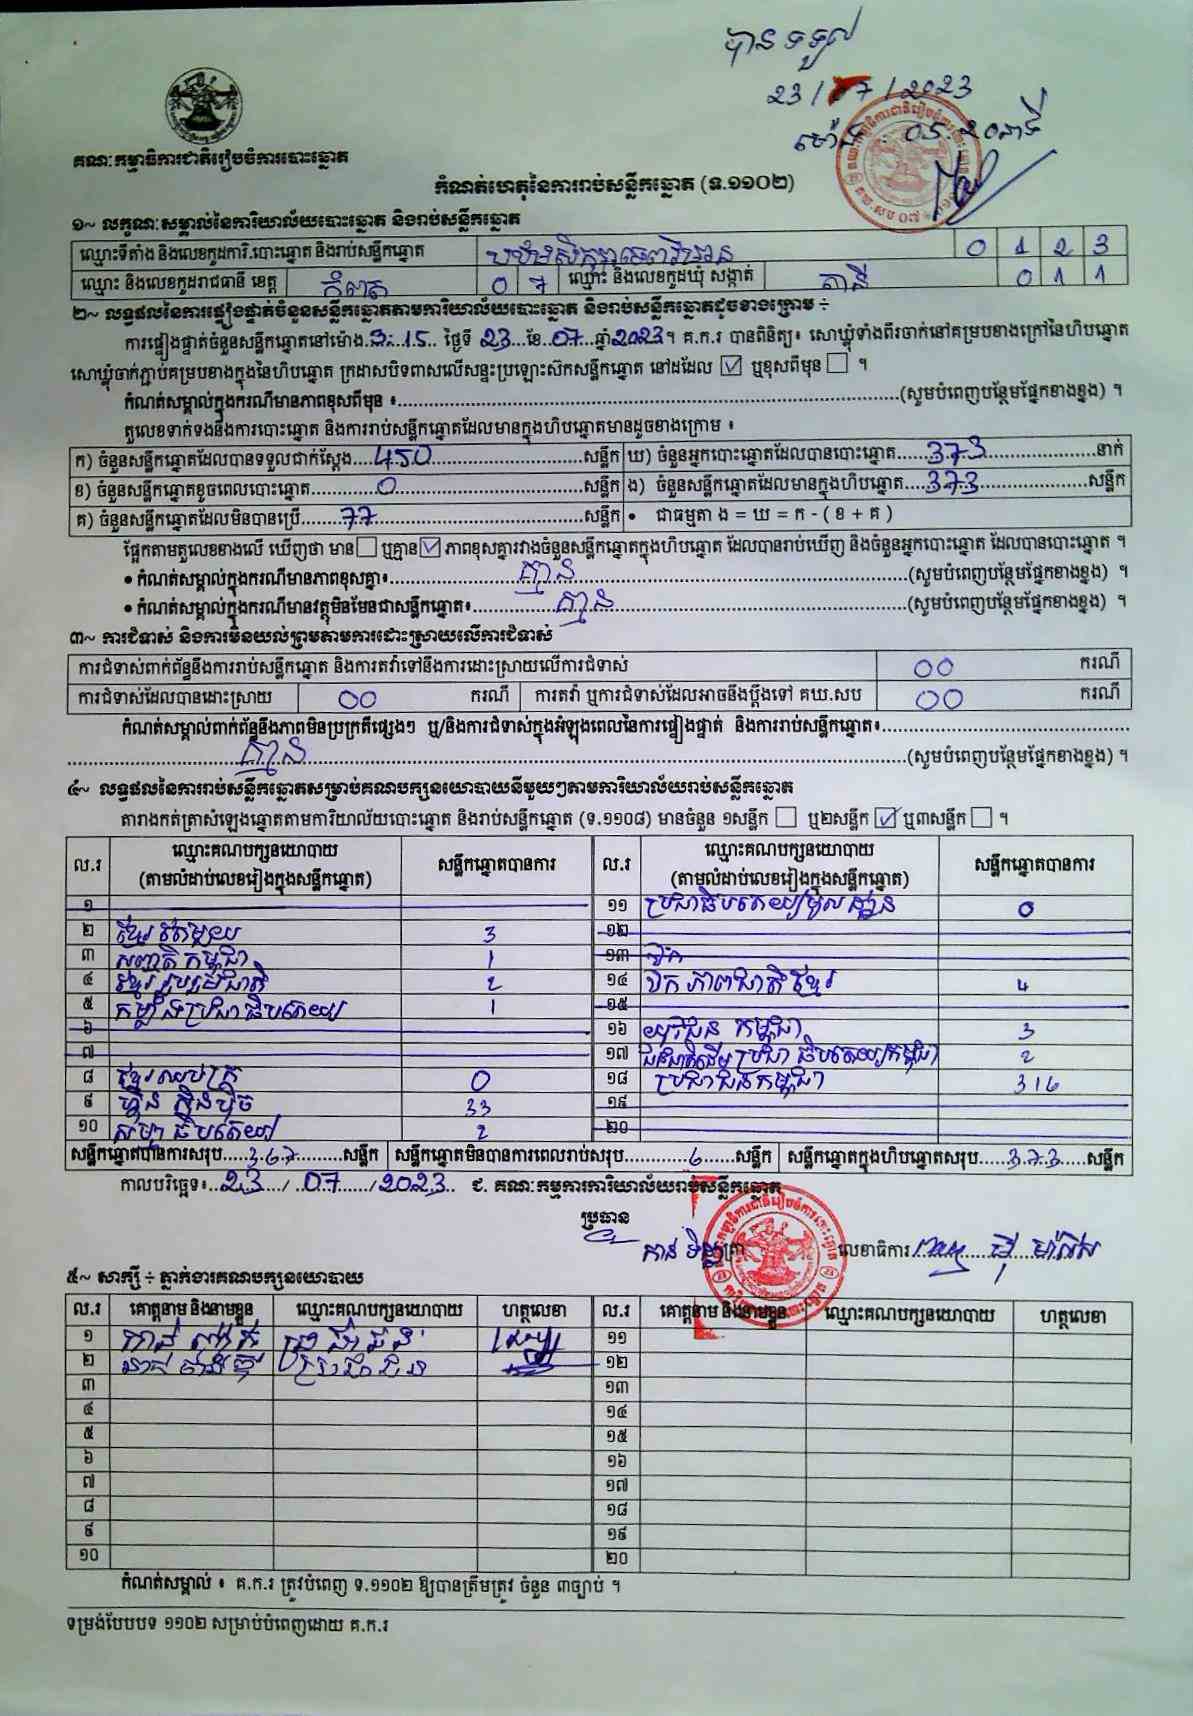 បានទទួល
23/07/2023
ម៉ោង: 05:20នាទី
គណៈកម្មាធិការជាតិរៀបចំការបោះឆ្នោត
កំណត់ហេតុនៃការរាប់សន្លឹកឆ្នោត (ទ.១១០២)
១~ លក្ខណៈសម្គាល់នៃការិយាល័យបោះឆ្នោត និងរាប់សន្លឹកឆ្នោត
ឈ្មោះទីតាំង និងលេខកូដការិ.បោះឆ្នោត និងរាប់សន្លឹកឆ្នោត 0 1 2 3
ឈ្មោះ និងលេខកូដរាជធានី ខេត្ត កំពត 0 7 ឈ្មោះ និងលេខកូដឃុំ សង្កាត់ តានី 0 1 1
២~ លទ្ធផលនៃការផ្ទៀងផ្ទាត់ចំនួនសន្លឹកឆ្នោតតាមការិយាល័យបោះឆ្នោត និងរាប់សន្លឹកឆ្នោតដូចខាងក្រោម ÷
ការផ្ទៀងផ្ទាត់ចំនួនសន្លឹកឆ្នោតនៅម៉ោង 3:15 ថ្ងៃទី 23 ខែ 07 ឆ្នាំ 2023។ គ.ក.រ បានពិនិត្យ៖ សោឃ្លុំទាំងពីរចាក់នៅគម្របខាងក្រៅនៃហិបឆ្នោត
សោឃ្លុំចាក់ភ្ជាប់គម្របខាងក្នុងនៃហិបឆ្នោត ក្រដាសបិទពាសលើសន្ទះប្រឡោះស៊កសន្លឹកឆ្នោត នៅដដែល ☑ ឬខុសពីមុន ☐ ។
កំណត់សម្គាល់ក្នុងករណីមានភាពខុសពីមុន ៖ (សូមបំពេញបន្ថែមផ្នែកខាងខ្នង) ។
តួលេខទាក់ទងនឹងការបោះឆ្នោត និងការរាប់សន្លឹកឆ្នោតដែលមានក្នុងហិបឆ្នោតមានដូចខាងក្រោម ៖
ក) ចំនួនសន្លឹកឆ្នោតដែលបានទទួលជាក់ស្តែង 450 សន្លឹក ឃ) ចំនួនអ្នកបោះឆ្នោតដែលបានបោះឆ្នោត 373 នាក់
ខ) ចំនួនសន្លឹកឆ្នោតខូចពេលបោះឆ្នោត 0 សន្លឹក ង) ចំនួនសន្លឹកឆ្នោតដែលមានក្នុងហិបឆ្នោត 373 សន្លឹក
គ) ចំនួនសន្លឹកឆ្នោតដែលមិនបានប្រើ 77 សន្លឹក • ជាធម្មតា ង = ឃ = ក - ( ខ + គ )
ផ្អែកតាមតួលេខខាងលើ ឃើញថា មាន ☐ ឬគ្មាន ☑ ភាពខុសគ្នារវាងចំនួនសន្លឹកឆ្នោតក្នុងហិបឆ្នោត ដែលបានរាប់ឃើញ និងចំនួនអ្នកបោះឆ្នោត ដែលបានបោះឆ្នោត ។
• កំណត់សម្គាល់ក្នុងករណីមានភាពខុសគ្នា៖ គ្មាន (សូមបំពេញបន្ថែមផ្នែកខាងខ្នង) ។
• កំណត់សម្គាល់ក្នុងករណីមានវត្ថុមិនមែនជាសន្លឹកឆ្នោត៖ គ្មាន (សូមបំពេញបន្ថែមផ្នែកខាងខ្នង) ។
៣~ ការជំទាស់ និងការមិនយល់ព្រមតាមការដោះស្រាយលើការជំទាស់
ការជំទាស់ពាក់ព័ន្ធនឹងការរាប់សន្លឹកឆ្នោត និងការតវ៉ាទៅនឹងការដោះស្រាយលើការជំទាស់ 00 ករណី
ការជំទាស់ដែលបានដោះស្រាយ 00 ករណី ការតវ៉ា ឬការជំទាស់ដែលអាចនឹងប្តឹងទៅ គឃ.សប 00 ករណី
កំណត់សម្គាល់ពាក់ព័ន្ធនឹងភាពមិនប្រក្រតីផ្សេងៗ ឬ/និងការជំទាស់ក្នុងអំឡុងពេលនៃការផ្ទៀងផ្ទាត់ និងការរាប់សន្លឹកឆ្នោត៖
គ្មាន (សូមបំពេញបន្ថែមផ្នែកខាងខ្នង) ។
៤~ លទ្ធផលនៃការរាប់សន្លឹកឆ្នោតសម្រាប់គណបក្សនយោបាយនីមួយៗតាមការិយាល័យរាប់សន្លឹកឆ្នោត
តារាងកត់ត្រាសំឡេងឆ្នោតតាមការិយាល័យបោះឆ្នោត និងរាប់សន្លឹកឆ្នោត (ទ.១១០៨) មានចំនួន ១សន្លឹក ☐ ឬ២សន្លឹក ☑ ឬ៣សន្លឹក ☐ ។
ល.រ ឈ្មោះគណបក្សនយោបាយ (តាមលំដាប់លេខរៀងក្នុងសន្លឹកឆ្នោត) សន្លឹកឆ្នោតបានការ ល.រ ឈ្មោះគណបក្សនយោបាយ (តាមលំដាប់លេខរៀងក្នុងសន្លឹកឆ្នោត) សន្លឹកឆ្នោតបានការ
១ ១១ ប្រជាធិបតេយ្យមូលដ្ឋាន 0
២ ខ្មែរតែមួយ 3 ១២
៣ សញ្ជាតិកម្ពុជា 1 ១៣
៤ ខ្មែររួបរួមជាតិ 2 ១៤ ឯកភាពជាតិខ្មែរ 4
៥ កម្លាំងប្រជាធិបតេយ្យ 1 ១៥
៦ ១៦ យុវជនកម្ពុជា 3
៧ ១៧ ជនជាតិដើមប្រជាធិបតេយ្យកម្ពុជា 2
៨ ខ្មែរឈប់ក្រ 0 ១៨ ប្រជាជនកម្ពុជា 316
៩ ហ៊្វុនស៊ិនប៉ិច 33 ១៩
១០ សម្បូរធិបតេយ្យ 2 ២០
សន្លឹកឆ្នោតបានការសរុប 367 សន្លឹក សន្លឹកឆ្នោតមិនបានការពេលរាប់សរុប 6 សន្លឹក សន្លឹកឆ្នោតក្នុងហិបឆ្នោតសរុប 373 សន្លឹក
កាលបរិច្ឆេទ៖ 23 / 07 / 2023 ជ. គណៈកម្មការការិយាល័យរាប់សន្លឹកឆ្នោត
ប្រធាន
លេខាធិការ
៥~ សាក្សី ÷ ភ្នាក់ងារគណបក្សនយោបាយ
ល.រ គោត្តនាម និងនាមខ្លួន ឈ្មោះគណបក្សនយោបាយ ហត្ថលេខា ល.រ គោត្តនាម និងនាមខ្លួន ឈ្មោះគណបក្សនយោបាយ ហត្ថលេខា
១ ១១
២ ប្រជាជន ១២
៣ ១៣
៤ ១៤
៥ ១៥
៦ ១៦
៧ ១៧
៨ ១៨
៩ ១៩
១០ ២០
កំណត់សម្គាល់ ៖ គ.ក.រ ត្រូវបំពេញ ទ.១១០២ ឱ្យបានត្រឹមត្រូវ ចំនួន ៣ច្បាប់ ។
ទម្រង់បែបបទ ១១០២ សម្រាប់បំពេញដោយ គ.ក.រ